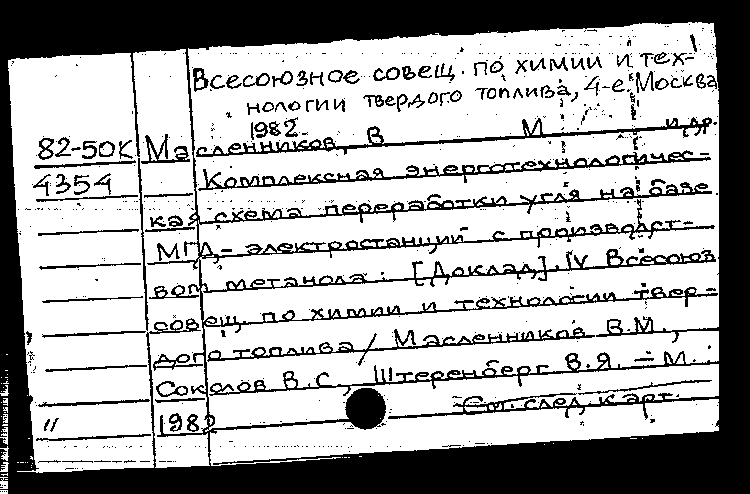 Всесоюзное совещ. по химии и тех-
нологии твердого топлива, 4-е. Москва
1982
82-50К Масленников, В М и др.
4354 Комплексная энерготехнологичес-
кая схема переработки угля на базе
МГД-электростанций с производст-
вом метанола: [Доклад]. IV Всесоюз
совещ. по химии и технологии твер-
дого топлива / Масленников В.М.,
Соколов В.С., Штеренберг В.Я. — М.:
" 1982
См. след. карт.